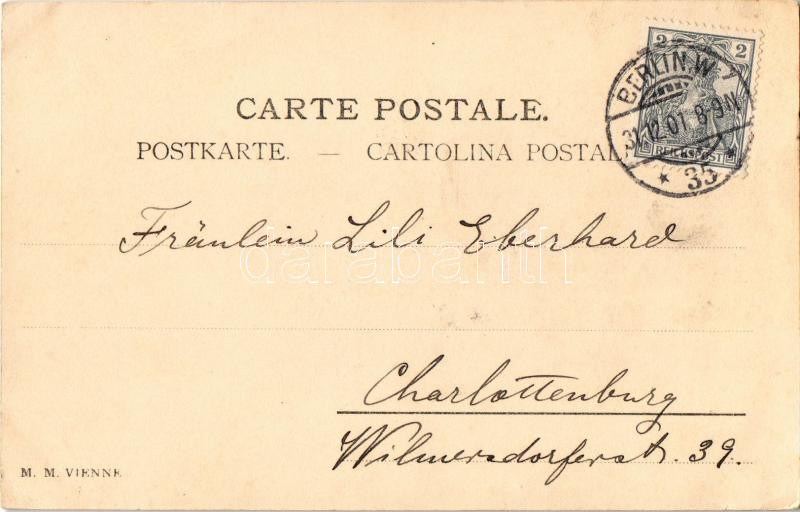 2 2
REICHSPOST
BERLIN. W
31.12.01. 8-9N.
* 35 *
CARTE POSTALE.
POSTKARTE. — CARTOLINA POSTAL
Fräulein Lili Eberhard
darabanth
Charlottenburg
Wilmersdorferstr. 39.
M. M. VIENNE